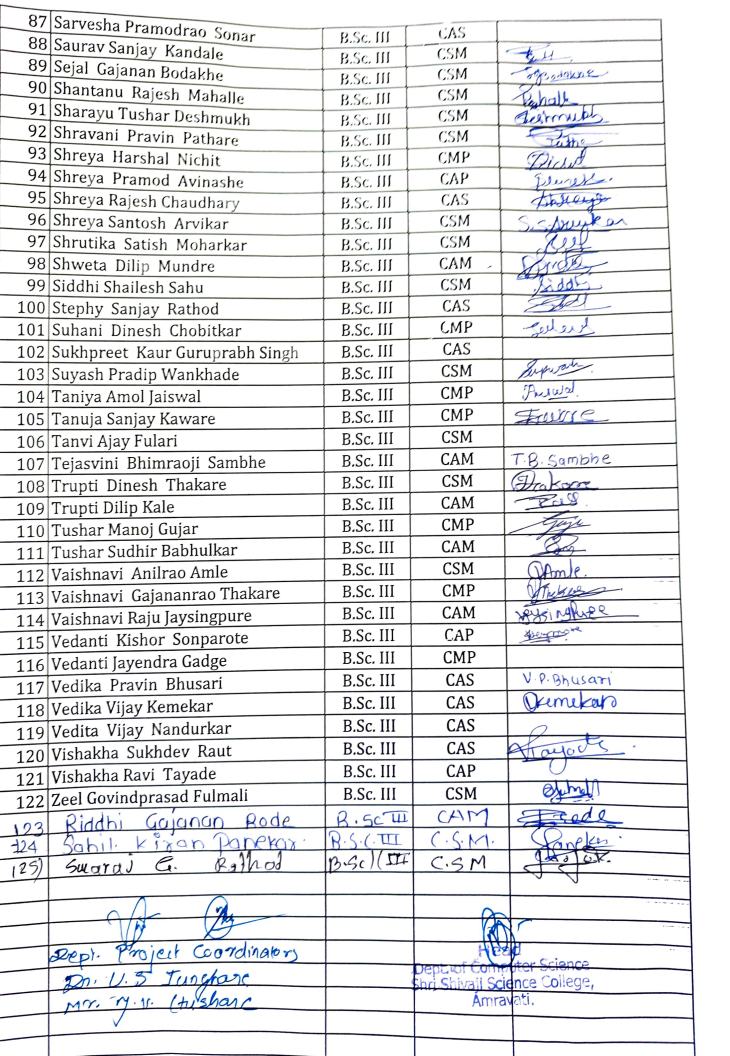 87 Sarvesha Pramodrao Sonar B.Sc. III CAS
88 Saurav Sanjay Kandale B.Sc. III CSM
89 Sejal Gajanan Bodakhe B.Sc. III CSM
90 Shantanu Rajesh Mahalle B.Sc. III CSM
91 Sharayu Tushar Deshmukh B.Sc. III CSM Deshmukh
92 Shravani Pravin Pathare B.Sc. III CSM
93 Shreya Harshal Nichit B.Sc. III CMP
94 Shreya Pramod Avinashe B.Sc. III CAP
95 Shreya Rajesh Chaudhary B.Sc. III CAS
96 Shreya Santosh Arvikar B.Sc. III CSM
97 Shrutika Satish Moharkar B.Sc. III CSM
98 Shweta Dilip Mundre B.Sc. III CAM
99 Siddhi Shailesh Sahu B.Sc. III CSM Siddhi
100 Stephy Sanjay Rathod B.Sc. III CAS
101 Suhani Dinesh Chobitkar B.Sc. III CMP
102 Sukhpreet Kaur Guruprabh Singh B.Sc. III CAS
103 Suyash Pradip Wankhade B.Sc. III CSM
104 Taniya Amol Jaiswal B.Sc. III CMP
105 Tanuja Sanjay Kaware B.Sc. III CMP
106 Tanvi Ajay Fulari B.Sc. III CSM
107 Tejasvini Bhimraoji Sambhe B.Sc. III CAM T.B. Sambhe
108 Trupti Dinesh Thakare B.Sc. III CSM
109 Trupti Dilip Kale B.Sc. III CAM
110 Tushar Manoj Gujar B.Sc. III CMP
111 Tushar Sudhir Babhulkar B.Sc. III CAM
112 Vaishnavi Anilrao Amle B.Sc. III CSM Amle.
113 Vaishnavi Gajananrao Thakare B.Sc. III CMP
114 Vaishnavi Raju Jaysingpure B.Sc. III CAM
115 Vedanti Kishor Sonparote B.Sc. III CAP
116 Vedanti Jayendra Gadge B.Sc. III CMP
117 Vedika Pravin Bhusari B.Sc. III CAS V.P. Bhusari
118 Vedika Vijay Kemekar B.Sc. III CAS Vkemekar
119 Vedita Vijay Nandurkar B.Sc. III CAS
120 Vishakha Sukhdev Raut B.Sc. III CAS
121 Vishakha Ravi Tayade B.Sc. III CAP
122 Zeel Govindprasad Fulmali B.Sc. III CSM
123 Riddhi Gajanan Rode B.Sc III CAM
124 Sahil Kiran Panekar B.S.C. III C.S.M.
125) Swaraj G. Rathod B.Sc III C.S.M
Dept. Project Coordinators
Dr. U.S
Mr.
Head
Dept. of Computer Science
Shri Shivaji Science College,
Amravati.